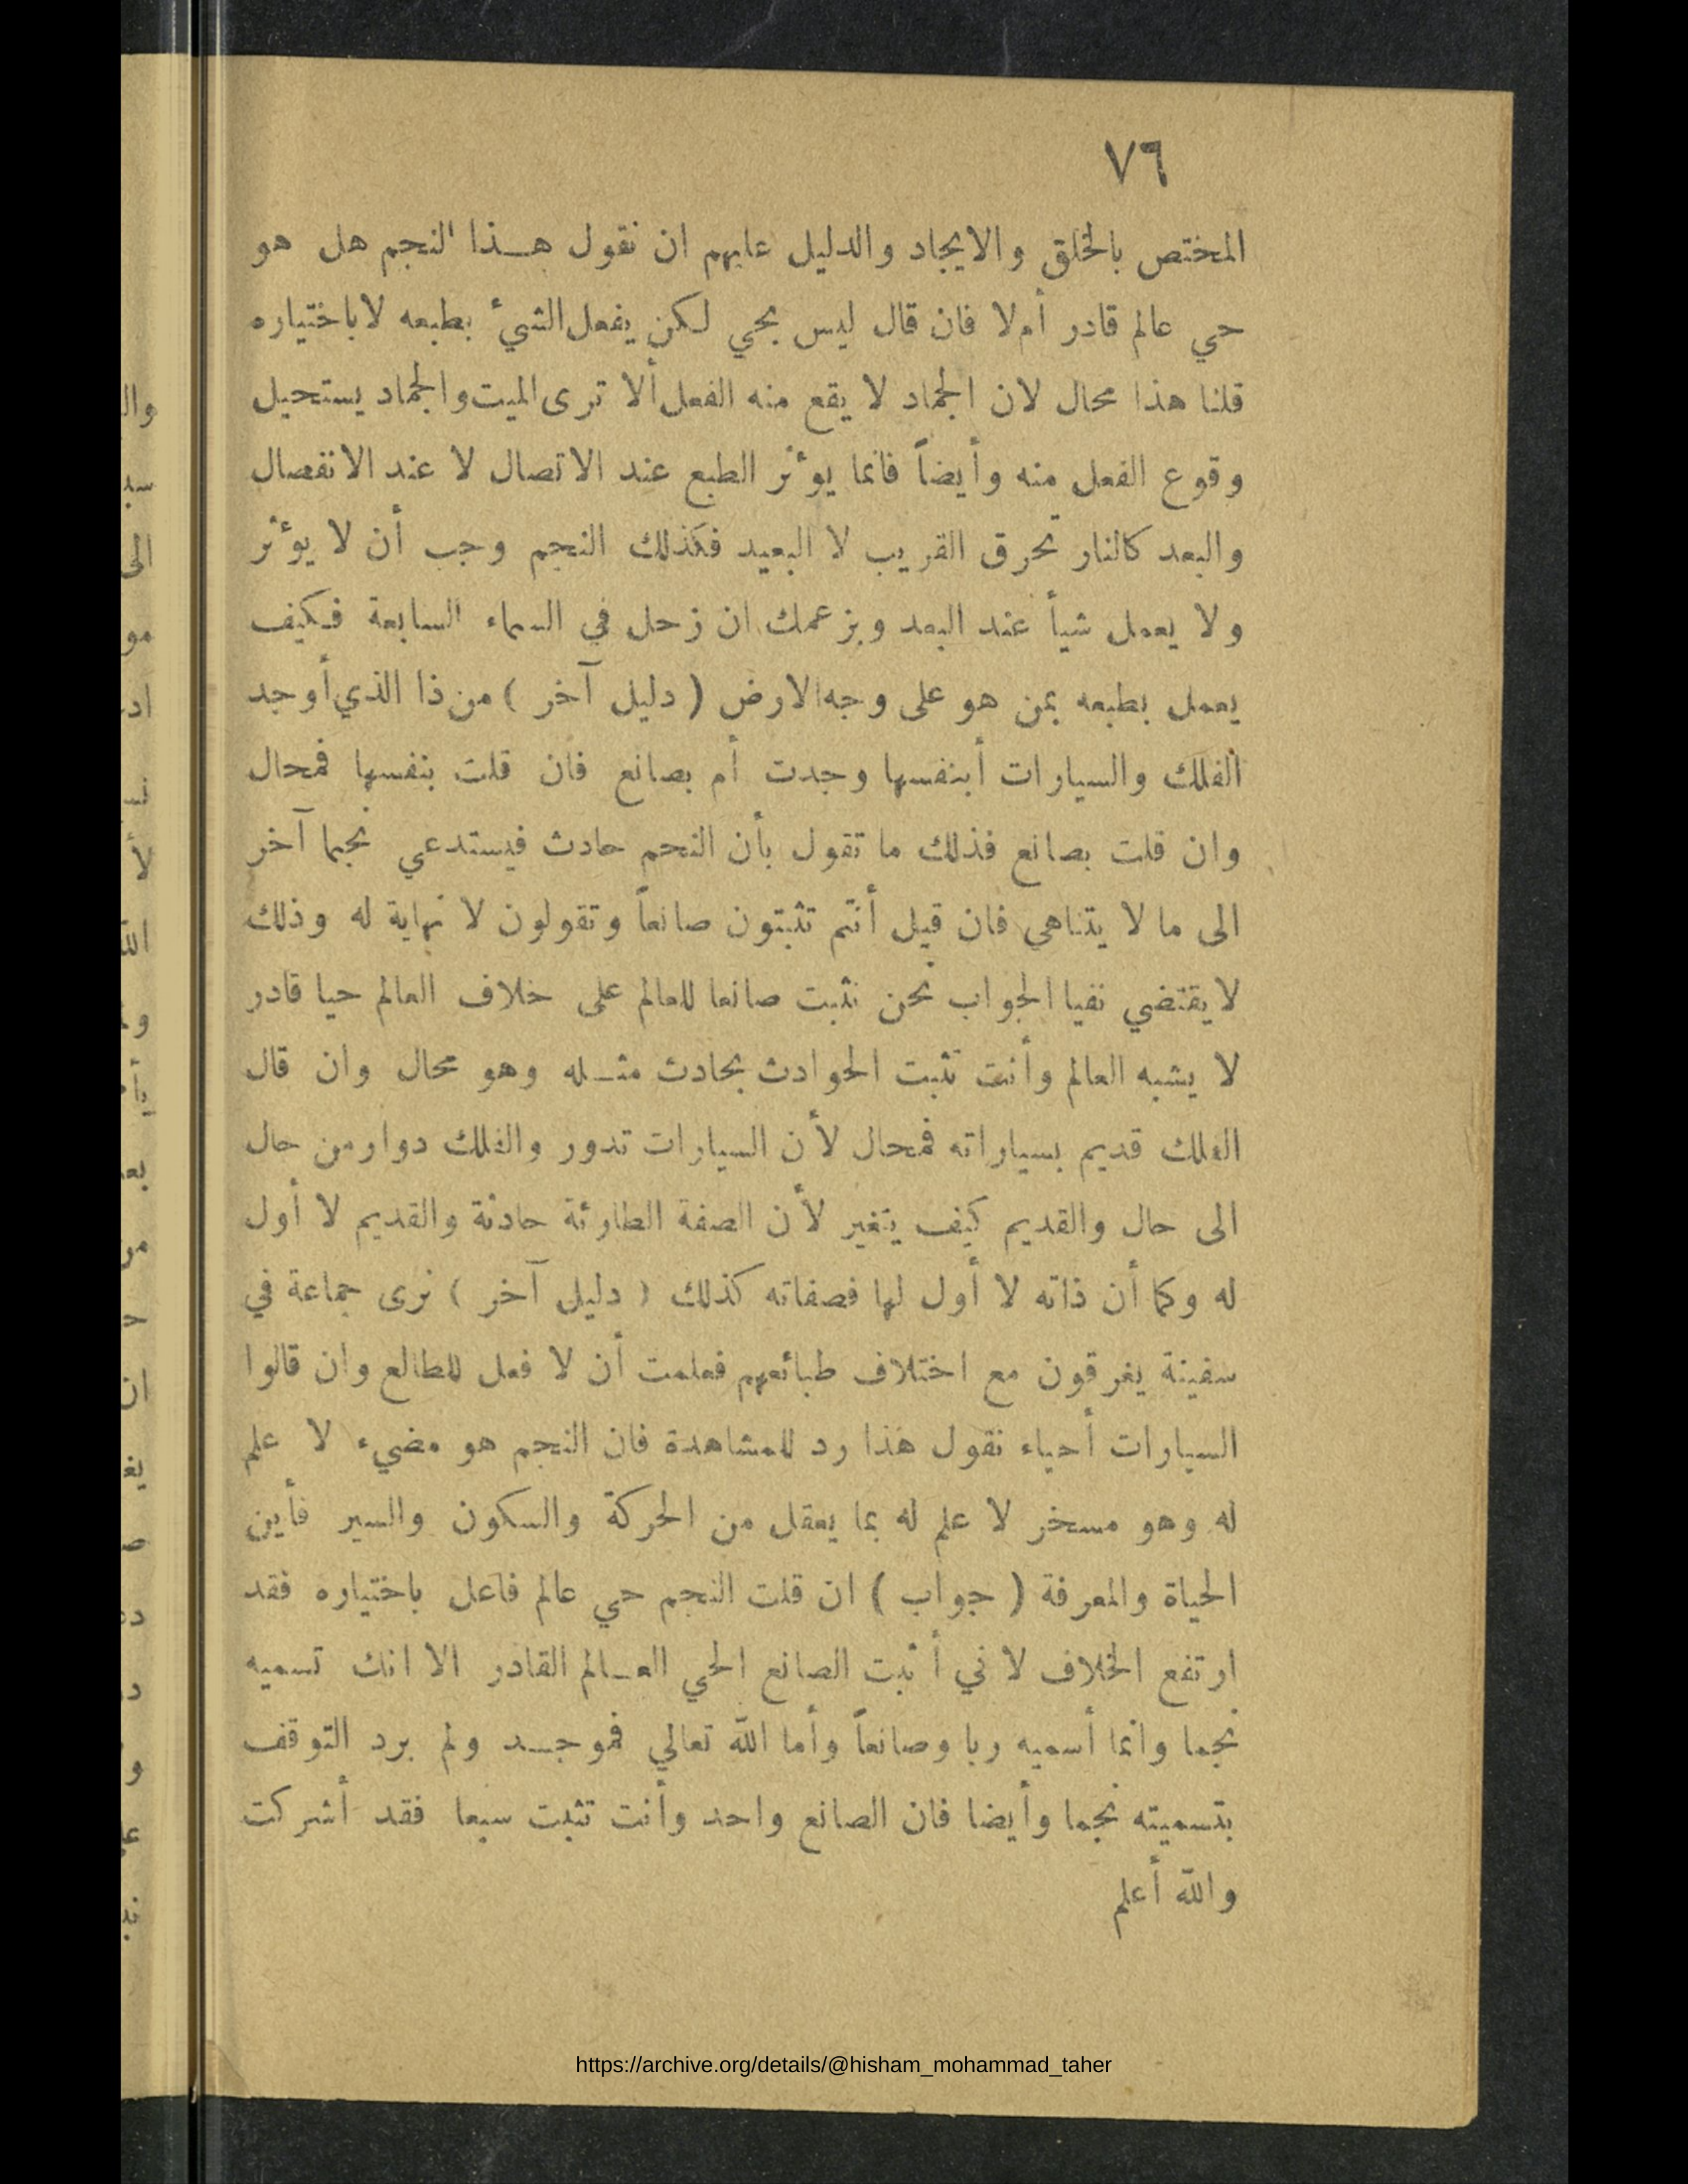 ٧٦
المختص بالخلق والايجاد والدليل عليهم ان نقول هـذا النجم هل هو
حي عالم قادر أم لا فان قال ليس بحي لكن يفعل الشيء بطبعه لا باختياره
قلنا هذا محال لان الجماد لا يقع منه الفعل ألا ترى الميت والجماد يستحيل
وقوع الفعل منه وأيضاً فانما يؤثر الطبع عند الاتصال لا عند الانفصال
والبعد كالنار تحرق القريب لا البعيد فكذلك النجم وجب أن لا يؤثر
ولا يعمل شيأ عند البعد وبزعمك ان زحل في السماء السابعة فكيف
يعمل بطبعه بمن هو على وجه الارض ( دليل آخر ) من ذا الذي أوجد
الفلك والسيارات أبنفسها وجدت أم بصانع فان قلت بنفسها فمحال
وان قلت بصانع فذلك ما تقول بأن النجم حادث فيستدعي نجما آخر
الى ما لا يتناهي فان قيل أنتم تثبتون صانعاً وتقولون لا نهاية له وذلك
لا يقتضي نفيا الجواب نحن نثبت صانعا للعالم على خلاف العالم حيا قادر
لا يشبه العالم وأنت تثبت الحوادث بحادث مثـله وهو محال وان قال
الفلك قديم بسياراته فمحال لأن السيارات تدور والفلك دوار من حال
الى حال والقديم كيف يتغير لأن الصفة الطارئة حادثة والقديم لا أول
له وكما أن ذاته لا أول لها فصفاته كذلك ( دليل آخر ) نرى جماعة في
سفينة يغرقون مع اختلاف طبائعهم فعلمت أن لا فعل للطالع وان قالوا
السيارات أحياء نقول هذا رد للمشاهدة فان النجم هو مضيء لا علم
له وهو مسخر لا علم له بما يعقل من الحركة والسكون والسير فأين
الحياة والمعرفة ( جواب ) ان قلت النجم حي عالم فاعل باختياره فقد
ارتفع الخلاف لاني أثبت الصانع الحي العـالم القادر الا انك تسميه
نجما وانما أسميه ربا وصانعاً وأما الله تعالي فموجـد ولم يرد التوقف
بتسميته نجما وأيضا فان الصانع واحد وأنت تثبت سبعا فقد أشركت
والله أعلم
https://archive.org/details/@hisham_mohammad_taher